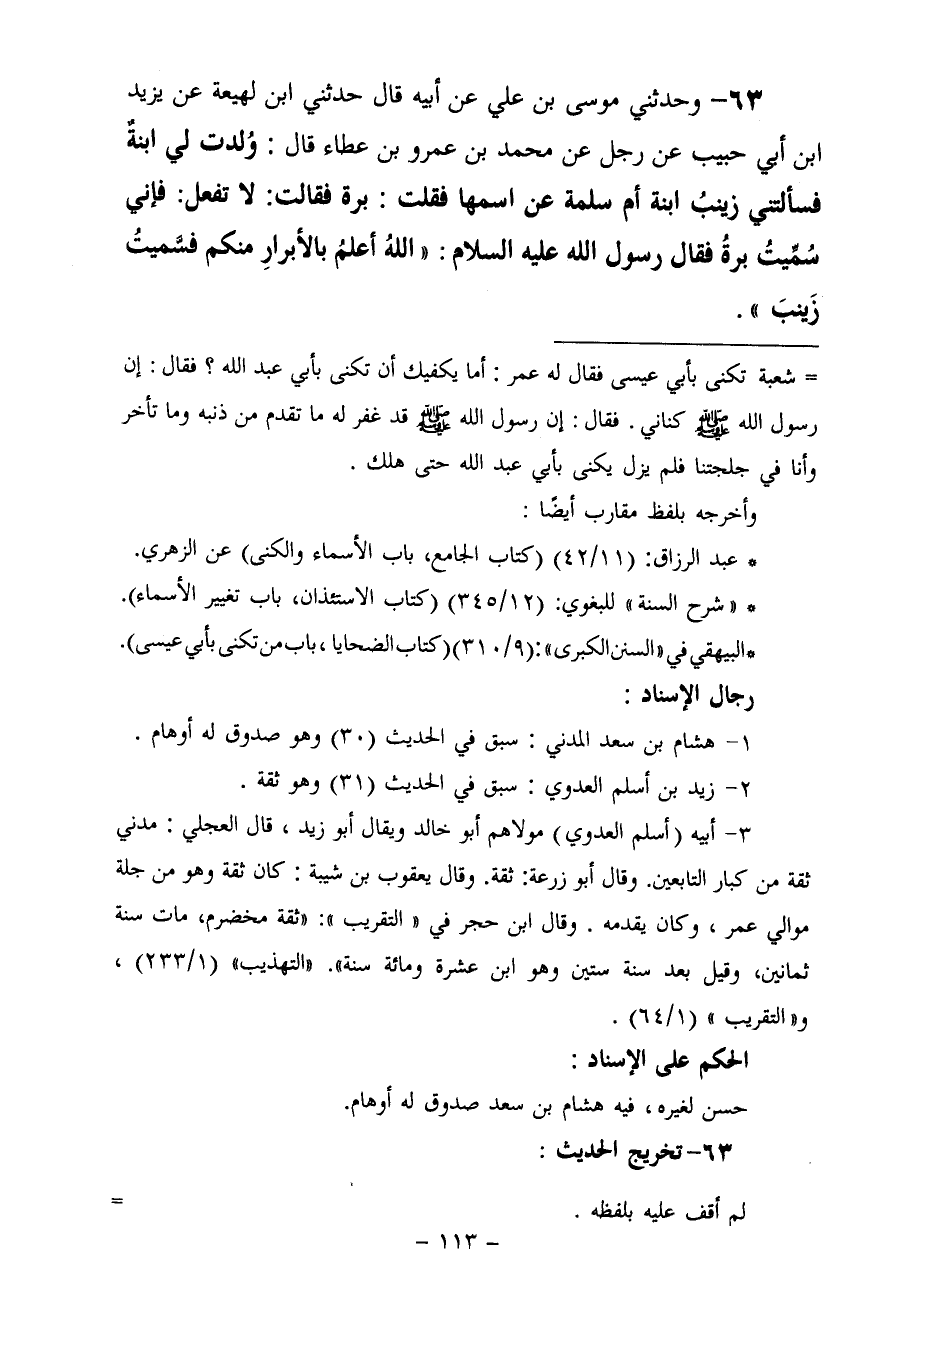 ٦٣- وحدثني موسى بن علي عن أبيه قال حدثني ابن لهيعة عن يزيد
ابن أبي حبيب عن رجل عن محمد بن عمرو بن عطاء قال : وُلدت لي ابنةٌ
فسألتني زينبُ ابنة أم سلمة عن اسمها فقلت : برة فقالت: لا تفعل: فإني
سُمِّيتُ برةُ فقال رسول الله عليه السلام : « اللهُ أعلمُ بالأبرارِ منكم فسَّميتُ
زَينبَ » .
= شعبة تكنى بأبي عيسى فقال له عمر : أما يكفيك أن تكنى بأبي عبد الله ؟ فقال : إن
رسول الله ﷺ كناني . فقال : إن رسول الله ﷺ قد غفر له ما تقدم من ذنبه وما تأخر
وأنا في جلجتنا فلم يزل يكنى بأبي عبد الله حتى هلك .
وأخرجه بلفظ مقارب أيضًا :
* عبد الرزاق: (٤٢/١١) (كتاب الجامع، باب الأسماء والكنى) عن الزهري.
* « شرح السنة » للبغوي: (٣٤٥/١٢) (كتاب الاستئذان، باب تغيير الأسماء).
*البيهقي في «السنن الكبرى»:(٣١٠/٩)(كتاب الضحايا ، باب من تكنى بأبي عيسى).
رجال الإسناد :
١- هشام بن سعد المدني : سبق في الحديث (٣٠) وهو صدوق له أوهام .
٢- زيد بن أسلم العدوي : سبق في الحديث (٣١) وهو ثقة .
٣- أبيه (أسلم العدوي) مولاهم أبو خالد ويقال أبو زيد ، قال العجلي : مدني
ثقة من كبار التابعين. وقال أبو زرعة: ثقة. وقال يعقوب بن شيبة : كان ثقة وهو من جلة
موالي عمر ، وكان يقدمه . وقال ابن حجر في « التقريب »: «ثقة مخضرم، مات سنة
ثمانين، وقيل بعد سنة ستين وهو ابن عشرة ومائة سنة». «التهذيب» (٢٣٣/١) ،
و« التقريب » (٦٤/١) .
الحكم على الإسناد :
حسن لغيره ، فيه هشام بن سعد صدوق له أوهام.
٦٣- تخريج الحديث :
لم أقف عليه بلفظه .
=
- ١١٣ -